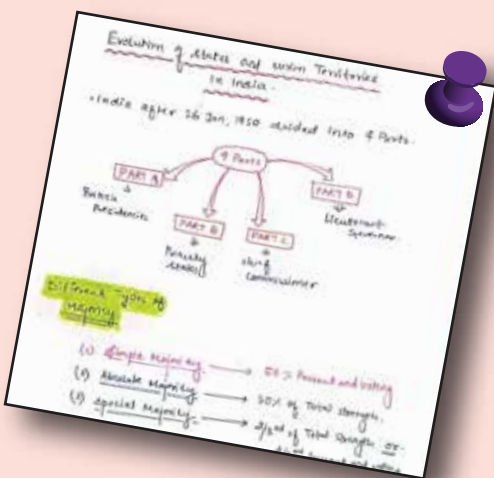 Evolution of States and union Territories
in India.
India after 26 Jan, 1950 divided into 4 Parts.
4 Parts
PART A
PART B
PART C
PART D
British Presidencies
Princely States
chief Commissioner
Lieutenant Governor
Different Types of
Majority
(1) Simple Majority → 50% Present and voting
(2) Absolute Majority → 50% of Total strength.
(3) Special Majority → 2/3rd of Total Strength or
Present and voting